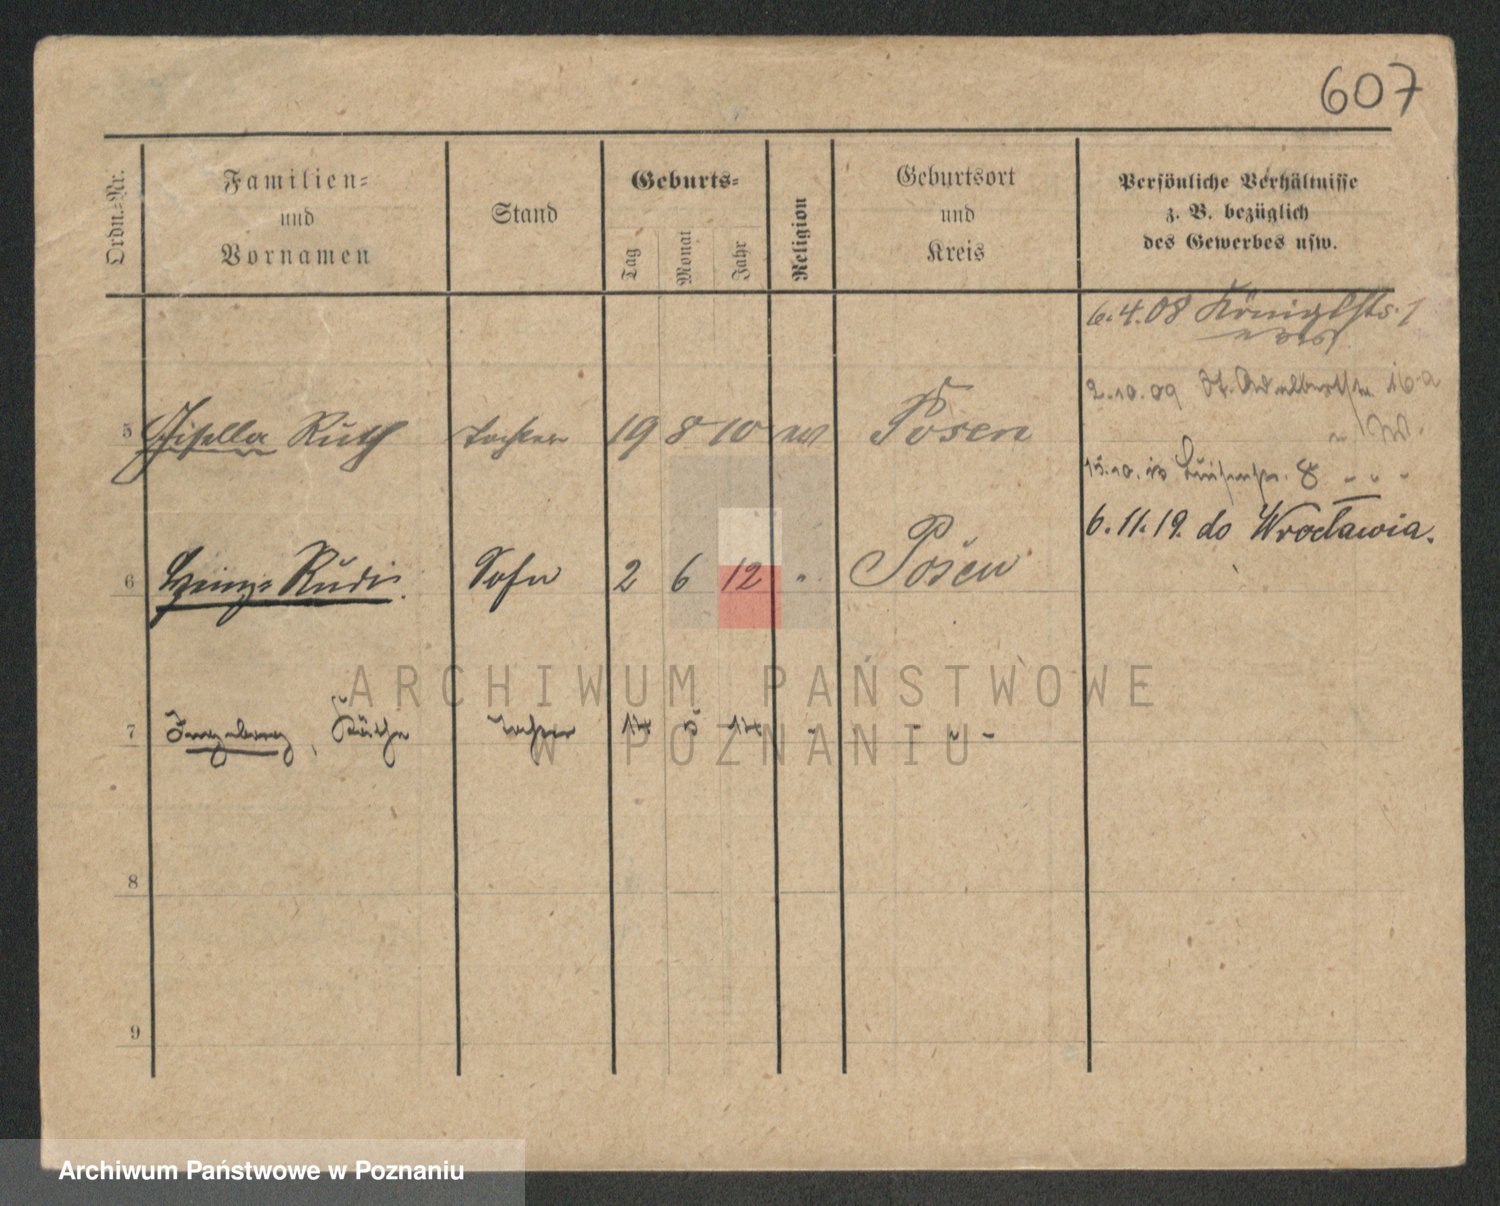 607
Ordn.-Nr.
Familien-
und
Vornamen
Stand
Geburts-
Tag
Monat
Jahr
Religion
Geburtsort
und
Kreis
Persönliche Verhältnisse
z. B. bezüglich
des Gewerbes usw.
6.4.08 Königsts. 1
2.10.09 St. Adalbertstr 16a
5 Gisella Ruth Tochter 19 8 10 Posen
15.10.10 Luisenstr. 8 " " "
6.11.19. do Wrocławia.
6 Heinz Rudi. Sohn 2 6 12 " Posen
7 Ingeborg, Käthe Tochter 17 5 17 " - " -
8
9
ARCHIWUM PAŃSTWOWE
W POZNANIU
Archiwum Państwowe w Poznaniu